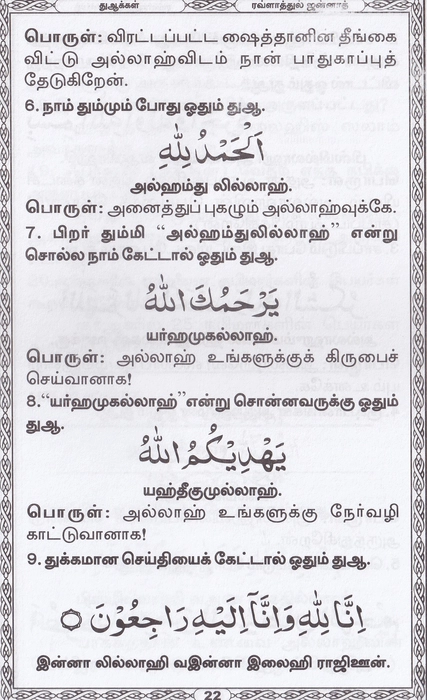 துஆக்கள்
ரவ்ளாத்துல் ஜன்னாத்
பொருள்: விரட்டப்பட்ட ஷைத்தானின் தீங்கை
விட்டு அல்லாஹ்விடம் நான் பாதுகாப்புத்
தேடுகிறேன்.
6. நாம் தும்மும் போது ஓதும் துஆ.
اَلْحَمْدُ لِلّٰهِ
அல்ஹம்து லில்லாஹ்.
பொருள்: அனைத்துப் புகழும் அல்லாஹ்வுக்கே.
7. பிறர் தும்மி “அல்ஹம்துலில்லாஹ்” என்று
சொல்ல நாம் கேட்டால் ஓதும் துஆ.
يَرْحَمُكَ اللّٰهُ
யர்ஹமுகல்லாஹ்.
பொருள்: அல்லாஹ் உங்களுக்குக் கிருபைச்
செய்வானாக!
8.“யர்ஹமுகல்லாஹ்” என்று சொன்னவருக்கு ஓதும்
துஆ.
يَهْدِيْكُمُ اللّٰهُ
யஹ்தீகுமுல்லாஹ்.
பொருள்: அல்லாஹ் உங்களுக்கு நேர்வழி
காட்டுவானாக!
9. துக்கமான செய்தியைக் கேட்டால் ஓதும் துஆ.
اِنَّا لِلّٰهِ وَاِنَّآ اِلَيْهِ رَاجِعُوْنَ ۝
இன்னா லில்லாஹி வஇன்னா இலைஹி ராஜிஊன்.
22